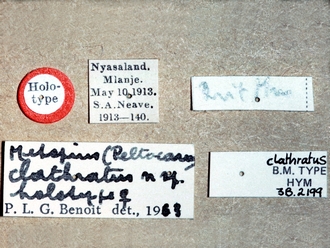 Holo-
type
Nyasaland.
Mlanje.
May 10.1913.
S.A. Neave.
1913—140.
Brit Mus
Metopius (Peltocarus)
clathratus n sp.
holotype ♀
P. L. G. Benoit det., 1963
clathratus
B.M. TYPE
HYM
3B.2199